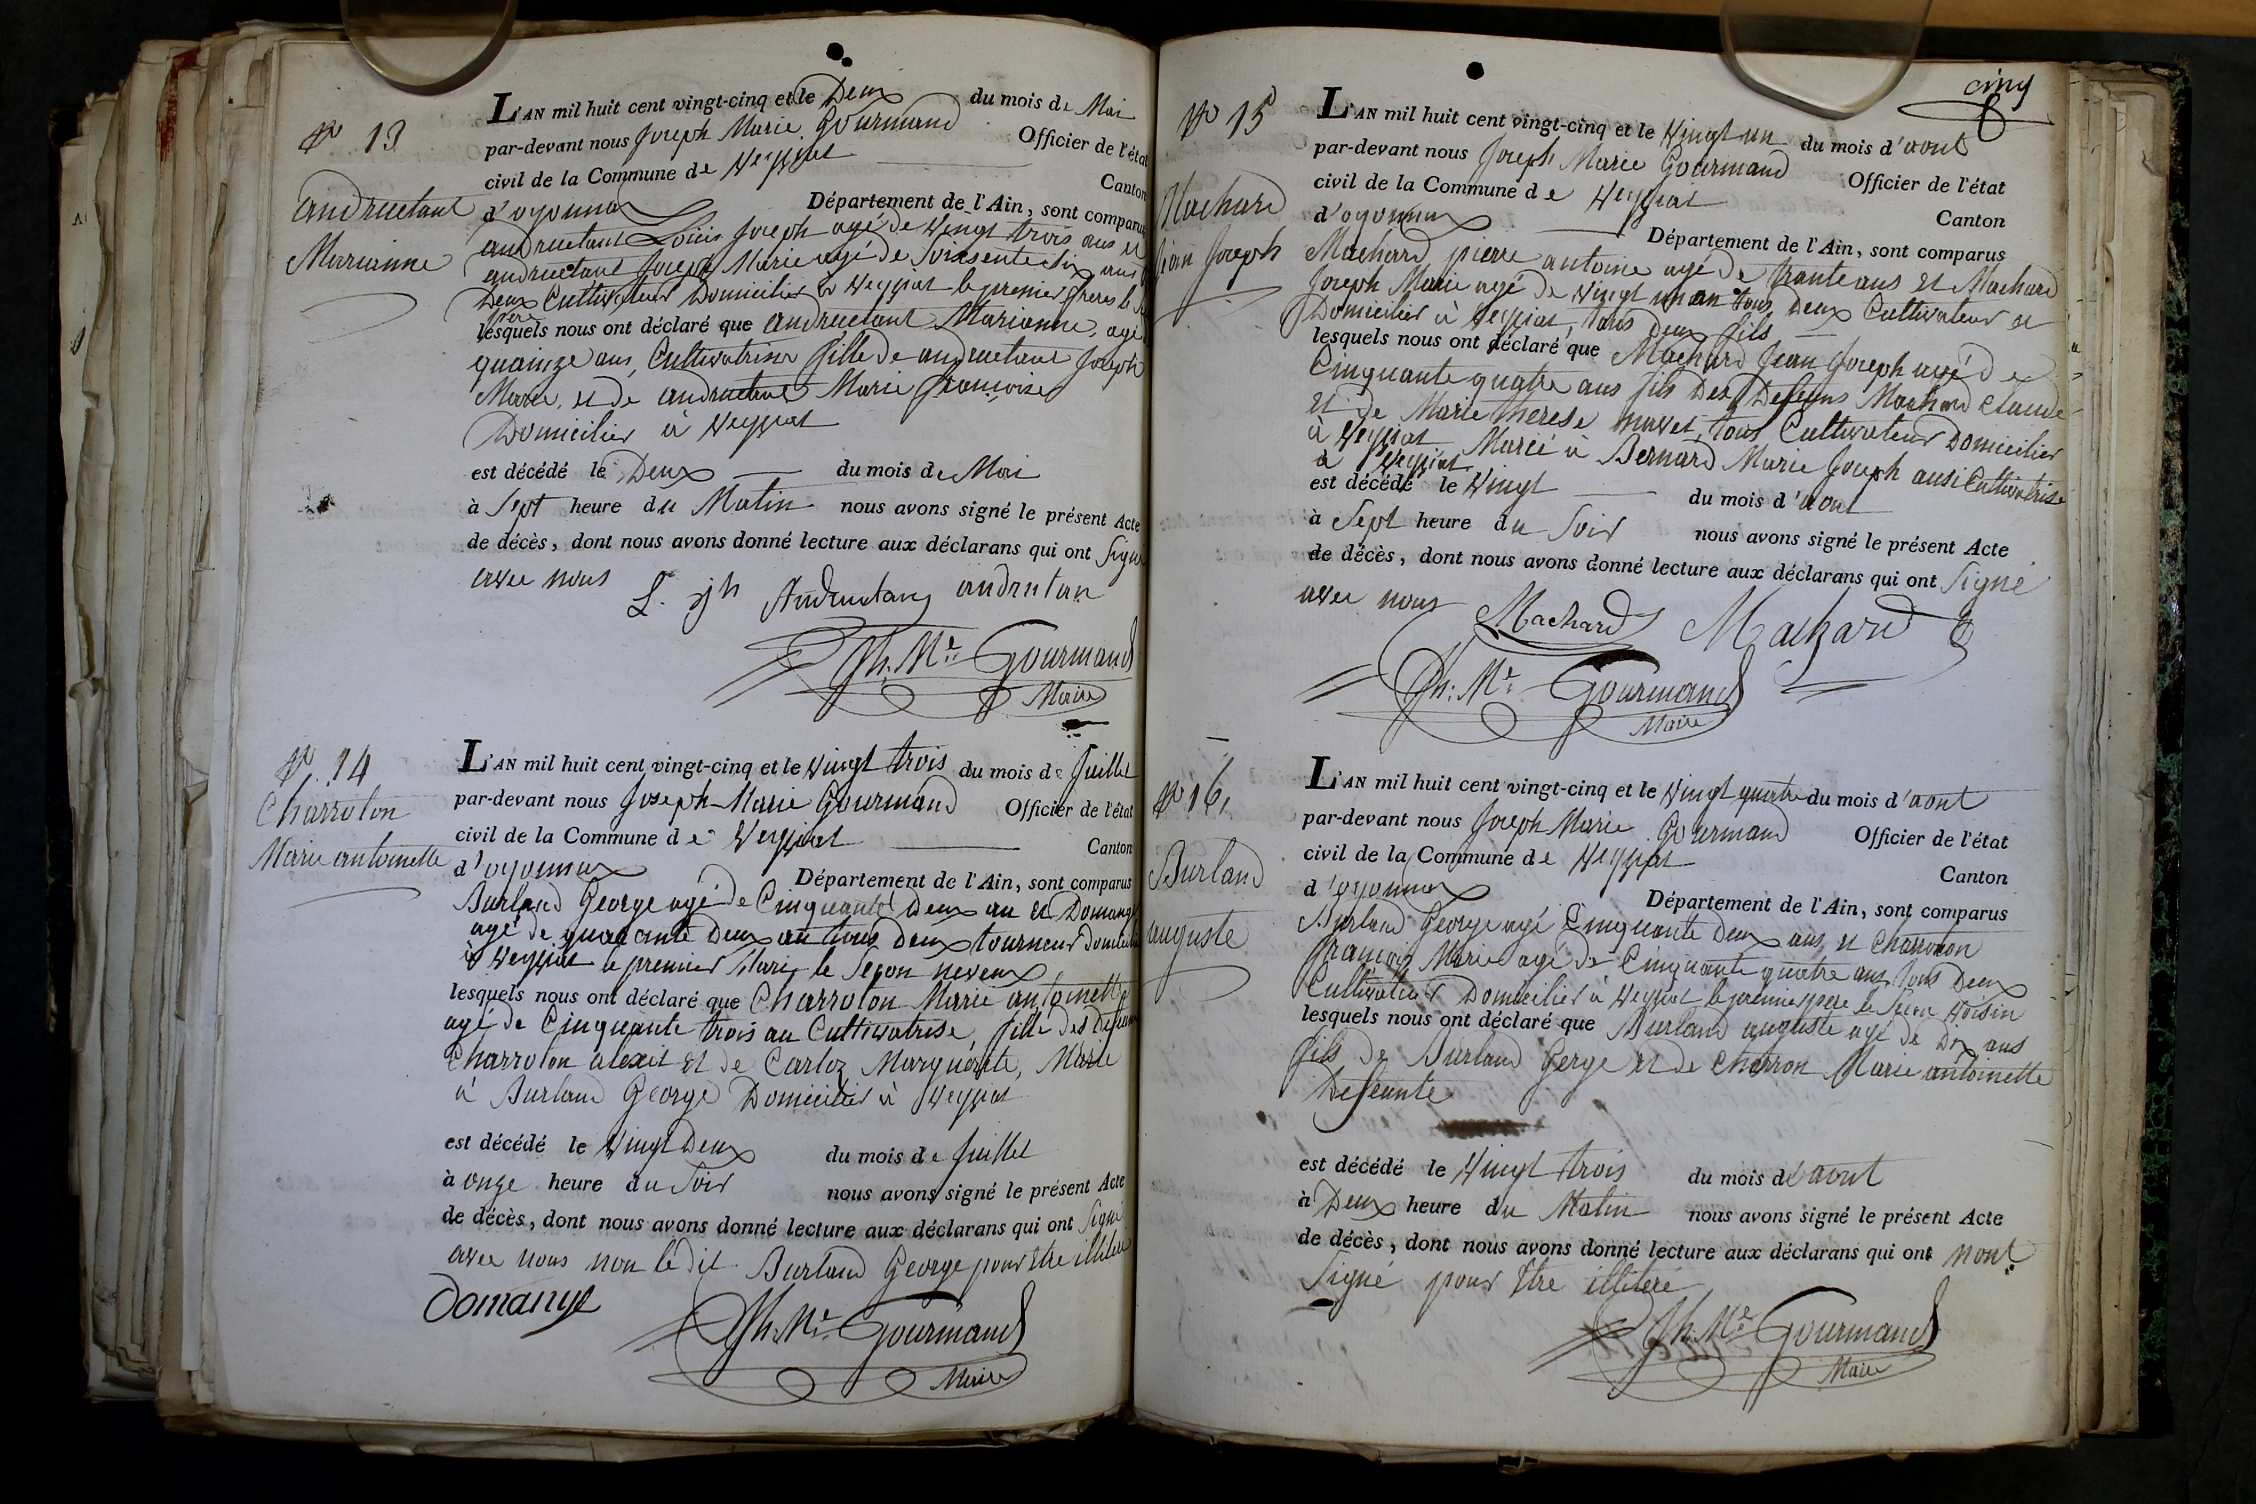 No 13
andruetant
Marianne
L'AN mil huit cent vingt-cinq et le Deux du mois de Mai
par-devant nous Joseph Marie Gourmand Officier de l'état
civil de la Commune de Veyziat Canton
d'oyonnax Département de l'Ain, sont comparus
andruetant Louis Joseph agé de vingt trois ans et
andruetant Joseph Marie agé de soixente six ans
Deux Cultivateur Domicilier à Veyziat le premier freres le
père
lesquels nous ont déclaré que andruetant Marianne, agé
quainze ans, Cultivatrise fille de andruetant Joseph
Marie, et de andruetant Marie françoise
Domicilier à Veyziat
est décédé le Deux du mois de Mai
à Sept heure du Matin nous avons signé le présent Acte
de décès, dont nous avons donné lecture aux déclarans qui ont Signé
avec nous
L. jh Andruetan andrutan
Jh. Mie Gourmand
Maire
No 14
Charroton
Marie antoinette
L'AN mil huit cent vingt-cinq et le vingt trois du mois de Juillet
par-devant nous Joseph Marie Gourmand Officier de l'état
civil de la Commune de Veyziat Canton
d'oyonnax Département de l'Ain, sont comparus
Burland George agé de Cinquante Deux an et Domange
agé de quarante Deux an tous deux tourneur Domicilier
à Veyziat le premier Mari, le Seçon neveux
lesquels nous ont déclaré que Charroton Marie antoinette
agé de Cinquante trois an Cultivatrise, fille des Defeun
Charroton alexit et de Carloz Marguerite, Marie
à Burland George Domicilier à Veyziat
est décédé le Vingt Deux du mois de Juillet
à onze heure du Soir nous avons signé le présent Acte
de décès, dont nous avons donné lecture aux déclarans qui ont Signé
avec nous non le dit Burland George pour être illitere
Domange
Jh. Mie Gourmand
Maire
cinq
No 15
Machard
jean Joseph
L'AN mil huit cent vingt-cinq et le Vingt un du mois d'aout
par-devant nous Joseph Marie Gourmand Officier de l'état
civil de la Commune de Veyziat Canton
d'oyonnax Département de l'Ain, sont comparus
Machard pierre antoine agé de trante ans et Machard
Joseph Marie agé de vingt un an tous deux Cultivateur et
Domicilier à Veyziat, tous Deux fils
lesquels nous ont déclaré que Machard Jean Joseph agé de
Cinquante quatre ans fils Des Defeuns Machard Claude
et de Marie therese mavet, tous Cultivateur Domicilier
à Veyziat Marié à Bernard Marie Joseph ausi Cultivatrise
à Veyziat
est décédé le Vingt du mois d'aout
à Sept heure du Soir nous avons signé le présent Acte
de décès, dont nous avons donné lecture aux déclarans qui ont Signé
avec nous
Machard Machard
Jh: Mie Gourmand
Maire
No 16,
Burland
auguste
L'AN mil huit cent vingt-cinq et le Vingt quatre du mois d'aout
par-devant nous Joseph Marie Gourmand Officier de l'état
civil de la Commune de Veyziat Canton
d'oyonnax Département de l'Ain, sont comparus
Burland George agé Cinquante Deux ans, et Charroton
françois Marie agé de Cinquante quatre ans, tous Deux
Cultivateur Domicilier à Veyziat le premier pere le Secon Voisin
lesquels nous ont déclaré que Burland auguste agé de Dix ans
fils de Burland Gerge et de Charron Marie antoinette
Defeante
est décédé le Vingt trois du mois d'aout
à Deux heure du Matin nous avons signé le présent Acte
de décès, dont nous avons donné lecture aux déclarans qui ont nont
Signé pour être illiteré
Jh. Mie Gourmand
Maire